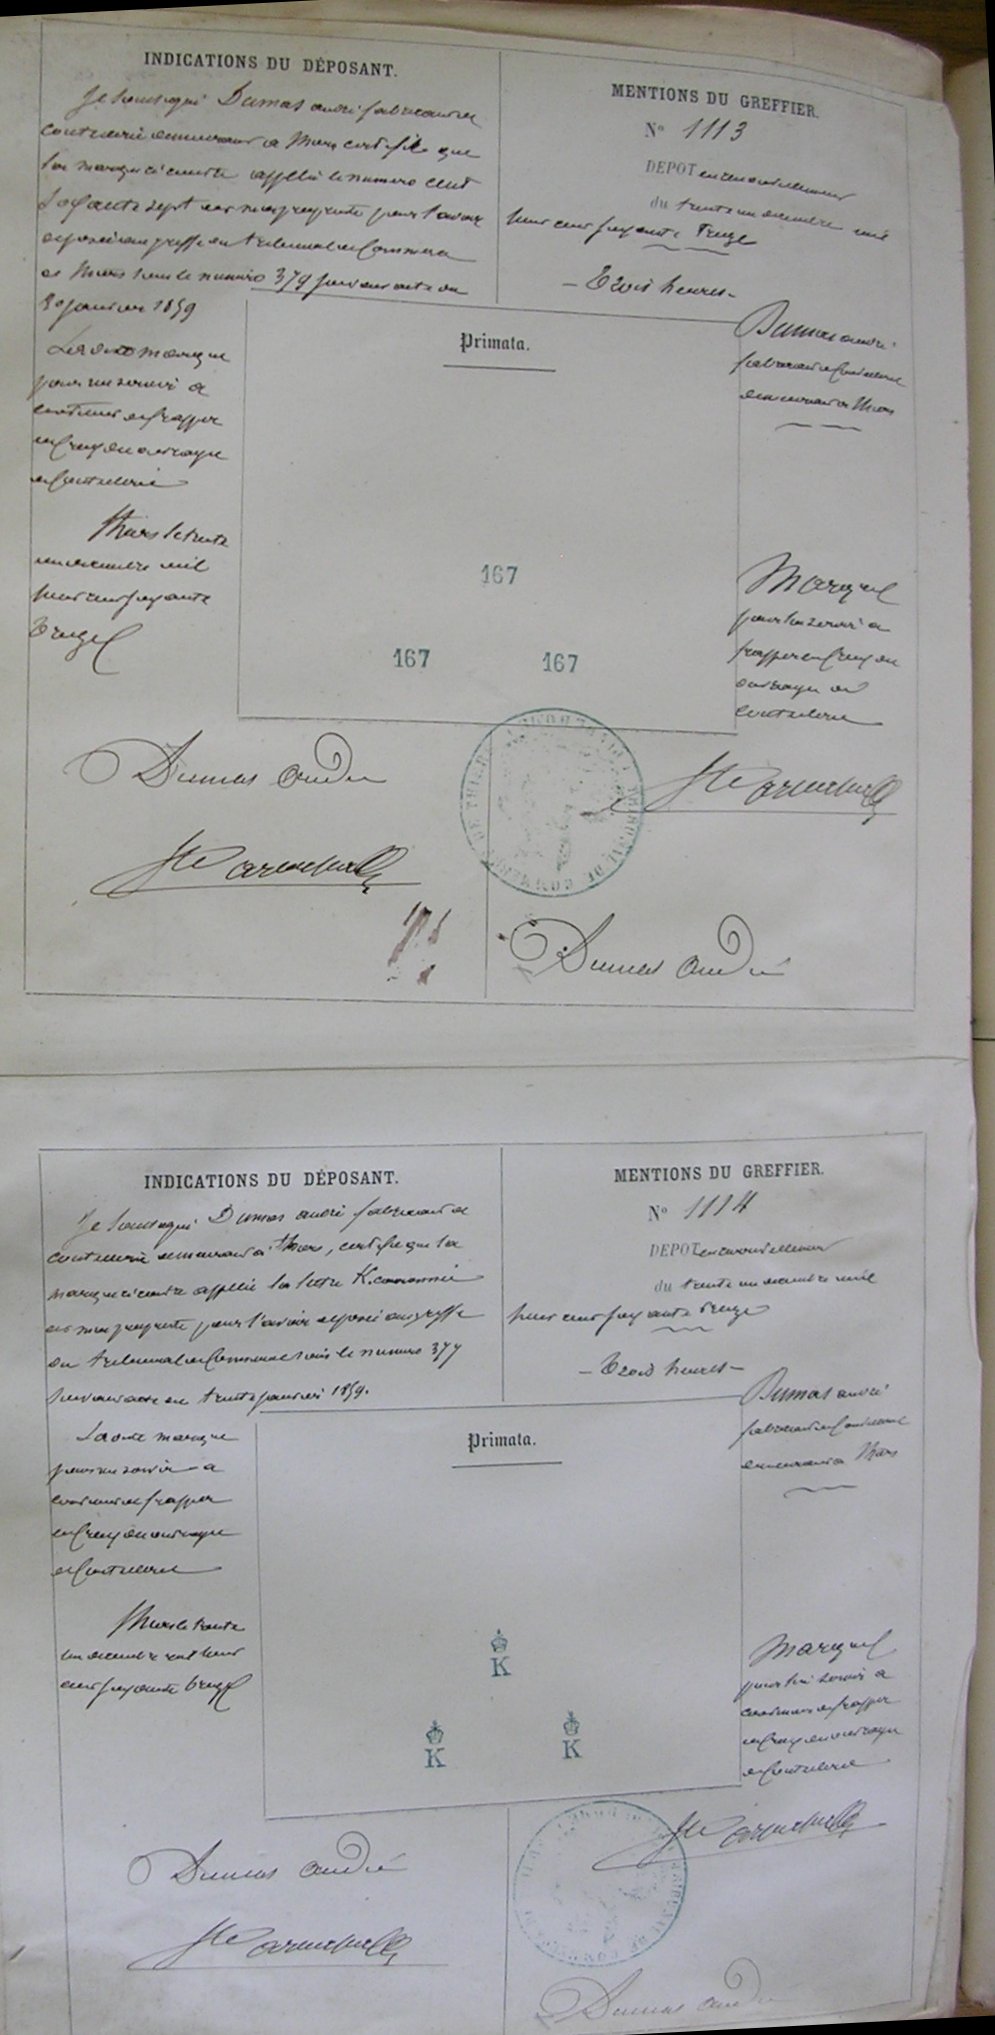 INDICATIONS DU DÉPOSANT.
Je soussigné Dumas andré fabricant de
coutellerie demeurant à Thiers certifie que
la marque ci contre appellée le numero cent
soixante sept est ma propriété pour l'avoir
déposée au greffe du tribunal de Commerce
de Thiers sous le numéro 379 suivant acte du
janvier 1859
La dite marque
pour me servir à
continuer de frapper
en Creux des ouvrages
de Coutellerie
Thiers le trente
un décembre mil
huit cent soixante
treize
MENTIONS DU GREFFIER.
N° 1113
DEPOT en renouvellement
du trente un décembre mil
huit cent soixante Treize
- Trois heures -
Primata.
Dumas andré
fabricant de Coutellerie
demeurant à Thiers
167
167 167
Marque
pour lui servir à
frapper en Creux des
ouvrages de
Coutellerie
Dumas andré
TRIBUNAL DE COMMERCE DE THIERS
Dumas andré
INDICATIONS DU DÉPOSANT.
Je soussigné Dumas andré fabricant de
coutellerie demeurant à Thiers, certifie que la
marque ci contre appellée la lettre K. couronnée
est ma propriété pour l'avoir déposée au greffe
du tribunal de Commerce sous le numero 377
suivant acte du trente janvier 1859.
La dite marque
pour me servir à
continuer de frapper
en Creux des ouvrages
de Coutellerie
Thiers le trente
un décembre mil huit
cent soixante treize
MENTIONS DU GREFFIER.
N° 1114
DEPOT en renouvellement
du trente un décembre mil
huit cent soixante treize
- Trois heures -
Primata.
Dumas andré
fabricant de Coutellerie
demeurant à Thiers
K
K K
Marque
pour lui servir à
continuer de frapper
en Creux des ouvrages
de Coutellerie
Dumas andré
Dumas andré